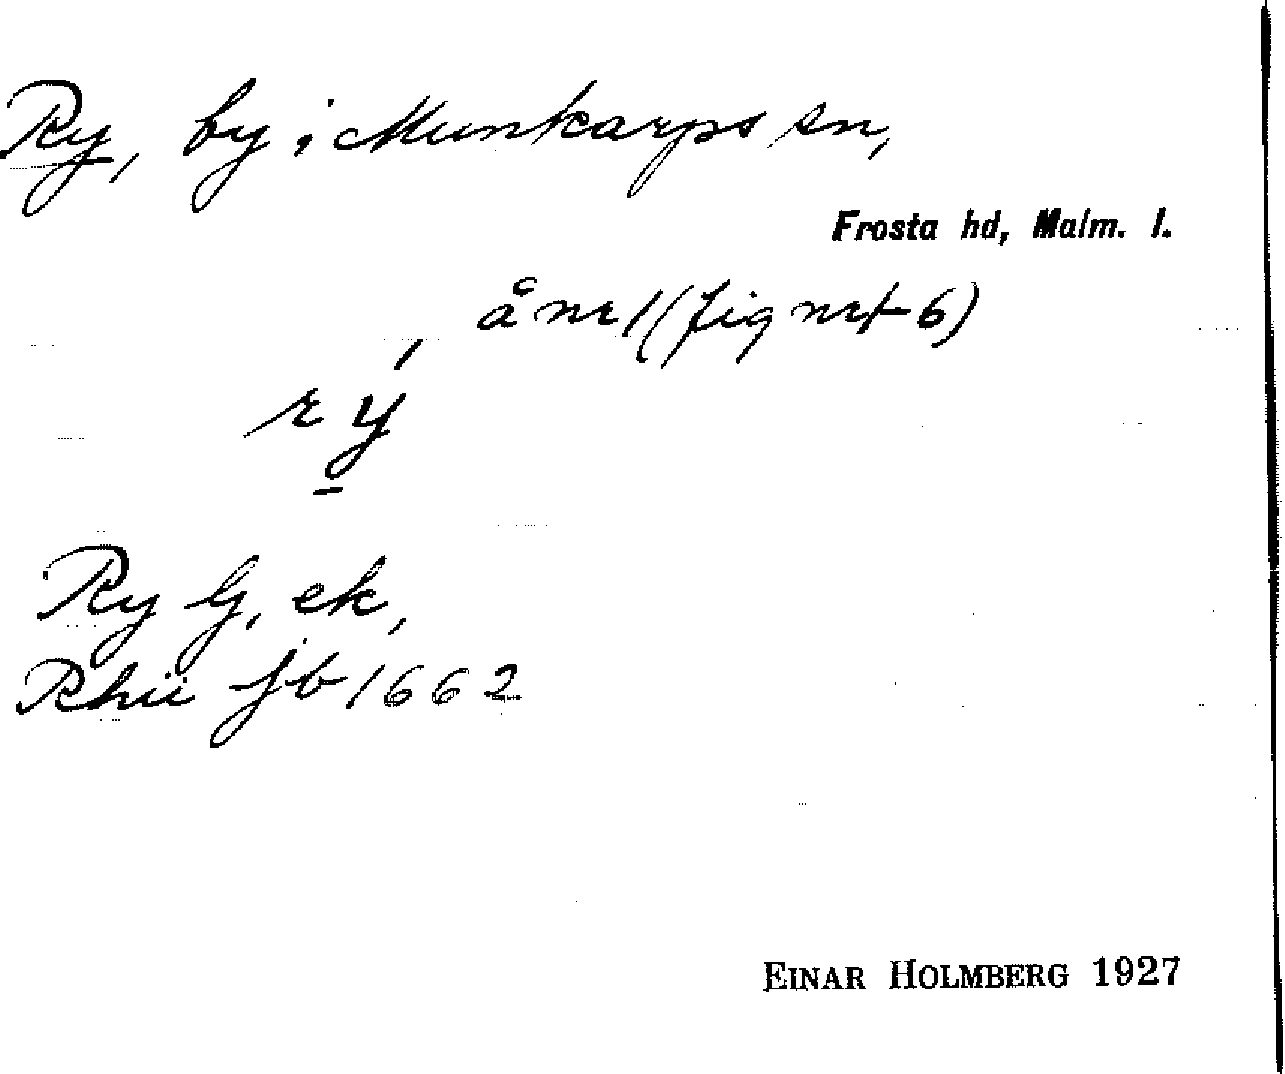 Ry, by i Munkarps sn,
Frosta hd, Malm. l.
å nr 1 (fig nr 1-6)
rý
Ry G, ek,
Rhü Jb 1662
EINAR HOLMBERG 1927